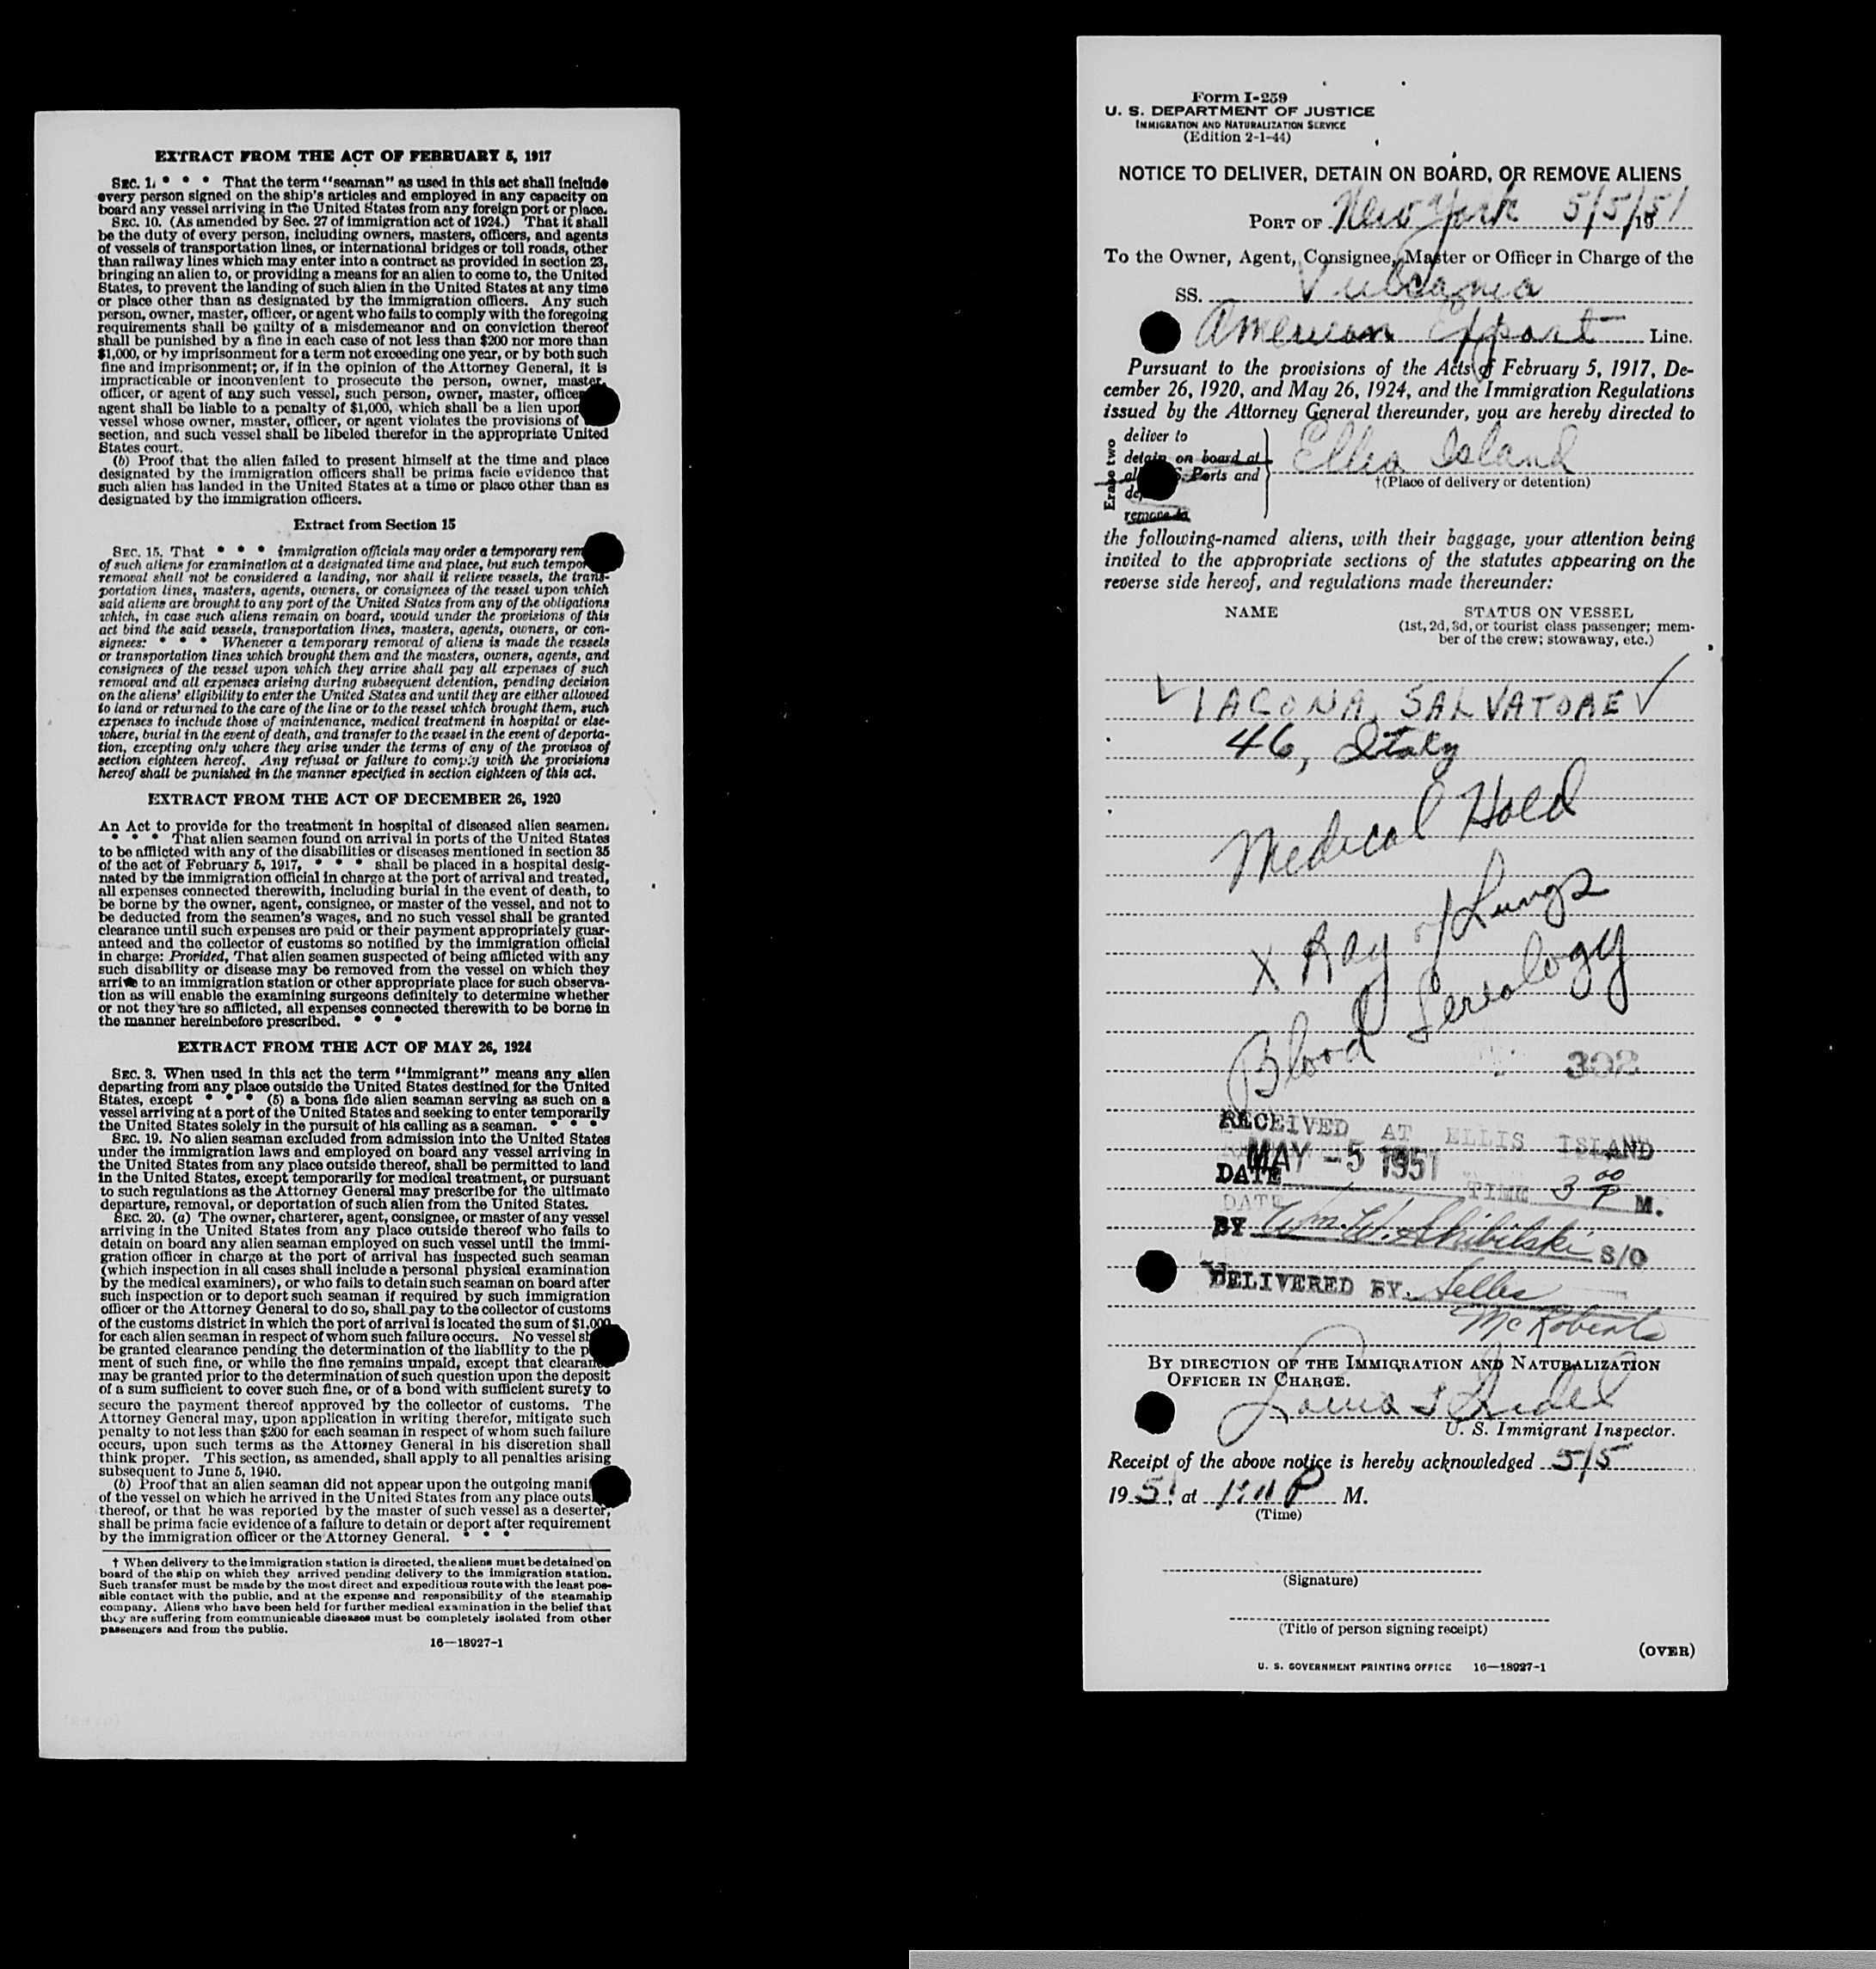 EXTRACT FROM THE ACT OF FEBRUARY 5, 1917
SEC. 1. * * * That the term "seaman" as used in this act shall include
every person signed on the ship's articles and employed in any capacity on
board any vessel arriving in the United States from any foreign port or place.
SEC. 10. (As amended by Sec. 27 of immigration act of 1924.) That it shall
be the duty of every person, including owners, masters, officers, and agents
of vessels of transportation lines, or international bridges or toll roads, other
than railway lines which may enter into a contract as provided in section 23,
bringing an alien to, or providing a means for an alien to come to, the United
States, to prevent the landing of such alien in the United States at any time
or place other than as designated by the immigration officers. Any such
person, owner, master, officer, or agent who fails to comply with the foregoing
requirements shall be guilty of a misdemeanor and on conviction thereof
shall be punished by a fine in each case of not less than $200 nor more than
$1,000, or by imprisonment for a term not exceeding one year, or by both such
fine and imprisonment; or, if in the opinion of the Attorney General, it is
impracticable or inconvenient to prosecute the person, owner, master,
officer, or agent of any such vessel, such person, owner, master, officer
agent shall be liable to a penalty of $1,000, which shall be a lien upon
vessel whose owner, master, officer, or agent violates the provisions of
section, and such vessel shall be libeled therefor in the appropriate United
States court.
(b) Proof that the alien failed to present himself at the time and place
designated by the immigration officers shall be prima facie evidence that
such alien has landed in the United States at a time or place other than as
designated by the immigration officers.
Extract from Section 15
SEC. 15. That * * * immigration officials may order a temporary rem
of such aliens for examination at a designated time and place, but such tempor
removal shall not be considered a landing, nor shall it relieve vessels, the trans-
portation lines, masters, agents, owners, or consignees of the vessel upon which
said aliens are brought to any port of the United States from any of the obligations
which, in case such aliens remain on board, would under the provisions of this
act bind the said vessels, transportation lines, masters, agents, owners, or con-
signees: * * * Whenever a temporary removal of aliens is made the vessels
or transportation lines which brought them and the masters, owners, agents, and
consignees of the vessel upon which they arrive shall pay all expenses of such
removal and all expenses arising during subsequent detention, pending decision
on the aliens' eligibility to enter the United States and until they are either allowed
to land or returned to the care of the line or to the vessel which brought them, such
expenses to include those of maintenance, medical treatment in hospital or else-
where, burial in the event of death, and transfer to the vessel in the event of deporta-
tion, excepting only where they arise under the terms of any of the provisos of
section eighteen hereof. Any refusal or failure to comply with the provisions
hereof shall be punished in the manner specified in section eighteen of this act.
EXTRACT FROM THE ACT OF DECEMBER 26, 1920
An Act to provide for the treatment in hospital of diseased alien seamen.
* * * That alien seamen found on arrival in ports of the United States
to be afflicted with any of the disabilities or diseases mentioned in section 35
of the act of February 5, 1917, * * * shall be placed in a hospital desig-
nated by the immigration official in charge at the port of arrival and treated,
all expenses connected therewith, including burial in the event of death, to
be borne by the owner, agent, consignee, or master of the vessel, and not to
be deducted from the seamen's wages, and no such vessel shall be granted
clearance until such expenses are paid or their payment appropriately guar-
anteed and the collector of customs so notified by the immigration official
in charge: Provided, That alien seamen suspected of being afflicted with any
such disability or disease may be removed from the vessel on which they
arrive to an immigration station or other appropriate place for such observa-
tion as will enable the examining surgeons definitely to determine whether
or not they are so afflicted, all expenses connected therewith to be borne in
the manner hereinbefore prescribed. * * *
EXTRACT FROM THE ACT OF MAY 26, 1924
SEC. 3. When used in this act the term "immigrant" means any alien
departing from any place outside the United States destined for the United
States, except * * * (5) a bona fide alien seaman serving as such on a
vessel arriving at a port of the United States and seeking to enter temporarily
the United States solely in the pursuit of his calling as a seaman. * * *
SEC. 19. No alien seaman excluded from admission into the United States
under the immigration laws and employed on board any vessel arriving in
the United States from any place outside thereof, shall be permitted to land
in the United States, except temporarily for medical treatment, or pursuant
to such regulations as the Attorney General may prescribe for the ultimate
departure, removal, or deportation of such alien from the United States.
SEC. 20. (a) The owner, charterer, agent, consignee, or master of any vessel
arriving in the United States from any place outside thereof who fails to
detain on board any alien seaman employed on such vessel until the immi-
gration officer in charge at the port of arrival has inspected such seaman
(which inspection in all cases shall include a personal physical examination
by the medical examiners), or who fails to detain such seaman on board after
such inspection or to deport such seaman if required by such immigration
officer or the Attorney General to do so, shall pay to the collector of customs
of the customs district in which the port of arrival is located the sum of $1,000
for each alien seaman in respect of whom such failure occurs. No vessel sh
be granted clearance pending the determination of the liability to the p
ment of such fine, or while the fine remains unpaid, except that clearance
may be granted prior to the determination of such question upon the deposit
of a sum sufficient to cover such fine, or of a bond with sufficient surety to
secure the payment thereof approved by the collector of customs. The
Attorney General may, upon application in writing therefor, mitigate such
penalty to not less than $200 for each seaman in respect of whom such failure
occurs, upon such terms as the Attorney General in his discretion shall
think proper. This section, as amended, shall apply to all penalties arising
subsequent to June 5, 1940.
(b) Proof that an alien seaman did not appear upon the outgoing mani
of the vessel on which he arrived in the United States from any place outs
thereof, or that he was reported by the master of such vessel as a deserter,
shall be prima facie evidence of a failure to detain or deport after requirement
by the immigration officer or the Attorney General. * * *
† When delivery to the immigration station is directed, the aliens must be detained on
board of the ship on which they arrived pending delivery to the immigration station.
Such transfer must be made by the most direct and expeditious route with the least pos-
sible contact with the public, and at the expense and responsibility of the steamship
company. Aliens who have been held for further medical examination in the belief that
they are suffering from communicable diseases must be completely isolated from other
passengers and from the public.
16—18927-1
Form I-259
U. S. DEPARTMENT OF JUSTICE
IMMIGRATION AND NATURALIZATION SERVICE
(Edition 2-1-44)
NOTICE TO DELIVER, DETAIN ON BOARD, OR REMOVE ALIENS
PORT OF New York 5/5/1951
To the Owner, Agent, Consignee, Master or Officer in Charge of the
SS. Vulcania
American Export Line.
Pursuant to the provisions of the Acts of February 5, 1917, De-
cember 26, 1920, and May 26, 1924, and the Immigration Regulations
issued by the Attorney General thereunder, you are hereby directed to
Erase two
deliver to
detain on board at
al S. Ports and
de
remove to
Ellis Island
†(Place of delivery or detention)
the following-named aliens, with their baggage, your attention being
invited to the appropriate sections of the statutes appearing on the
reverse side hereof, and regulations made thereunder:
NAME STATUS ON VESSEL
(1st, 2d, 3d, or tourist class passenger; mem-
ber of the crew; stowaway, etc.)
✓ IACONA, SALVATORE ✓
46, Italy
Medical Hold
X Ray of Lungs
Blood Serology
302
RECEIVED AT ELLIS ISLAND
DATE MAY -5 1951 TIME 3 00 P M.
BY Wm. W. S/O
DELIVERED BY.
McRoberts
BY DIRECTION OF THE IMMIGRATION AND NATURALIZATION
OFFICER IN CHARGE.
Louis
U. S. Immigrant Inspector.
Receipt of the above notice is hereby acknowledged 5/5
1951, at P M.
(Time)
(Signature)
(Title of person signing receipt)
(OVER)
U. S. GOVERNMENT PRINTING OFFICE 16—18927-1